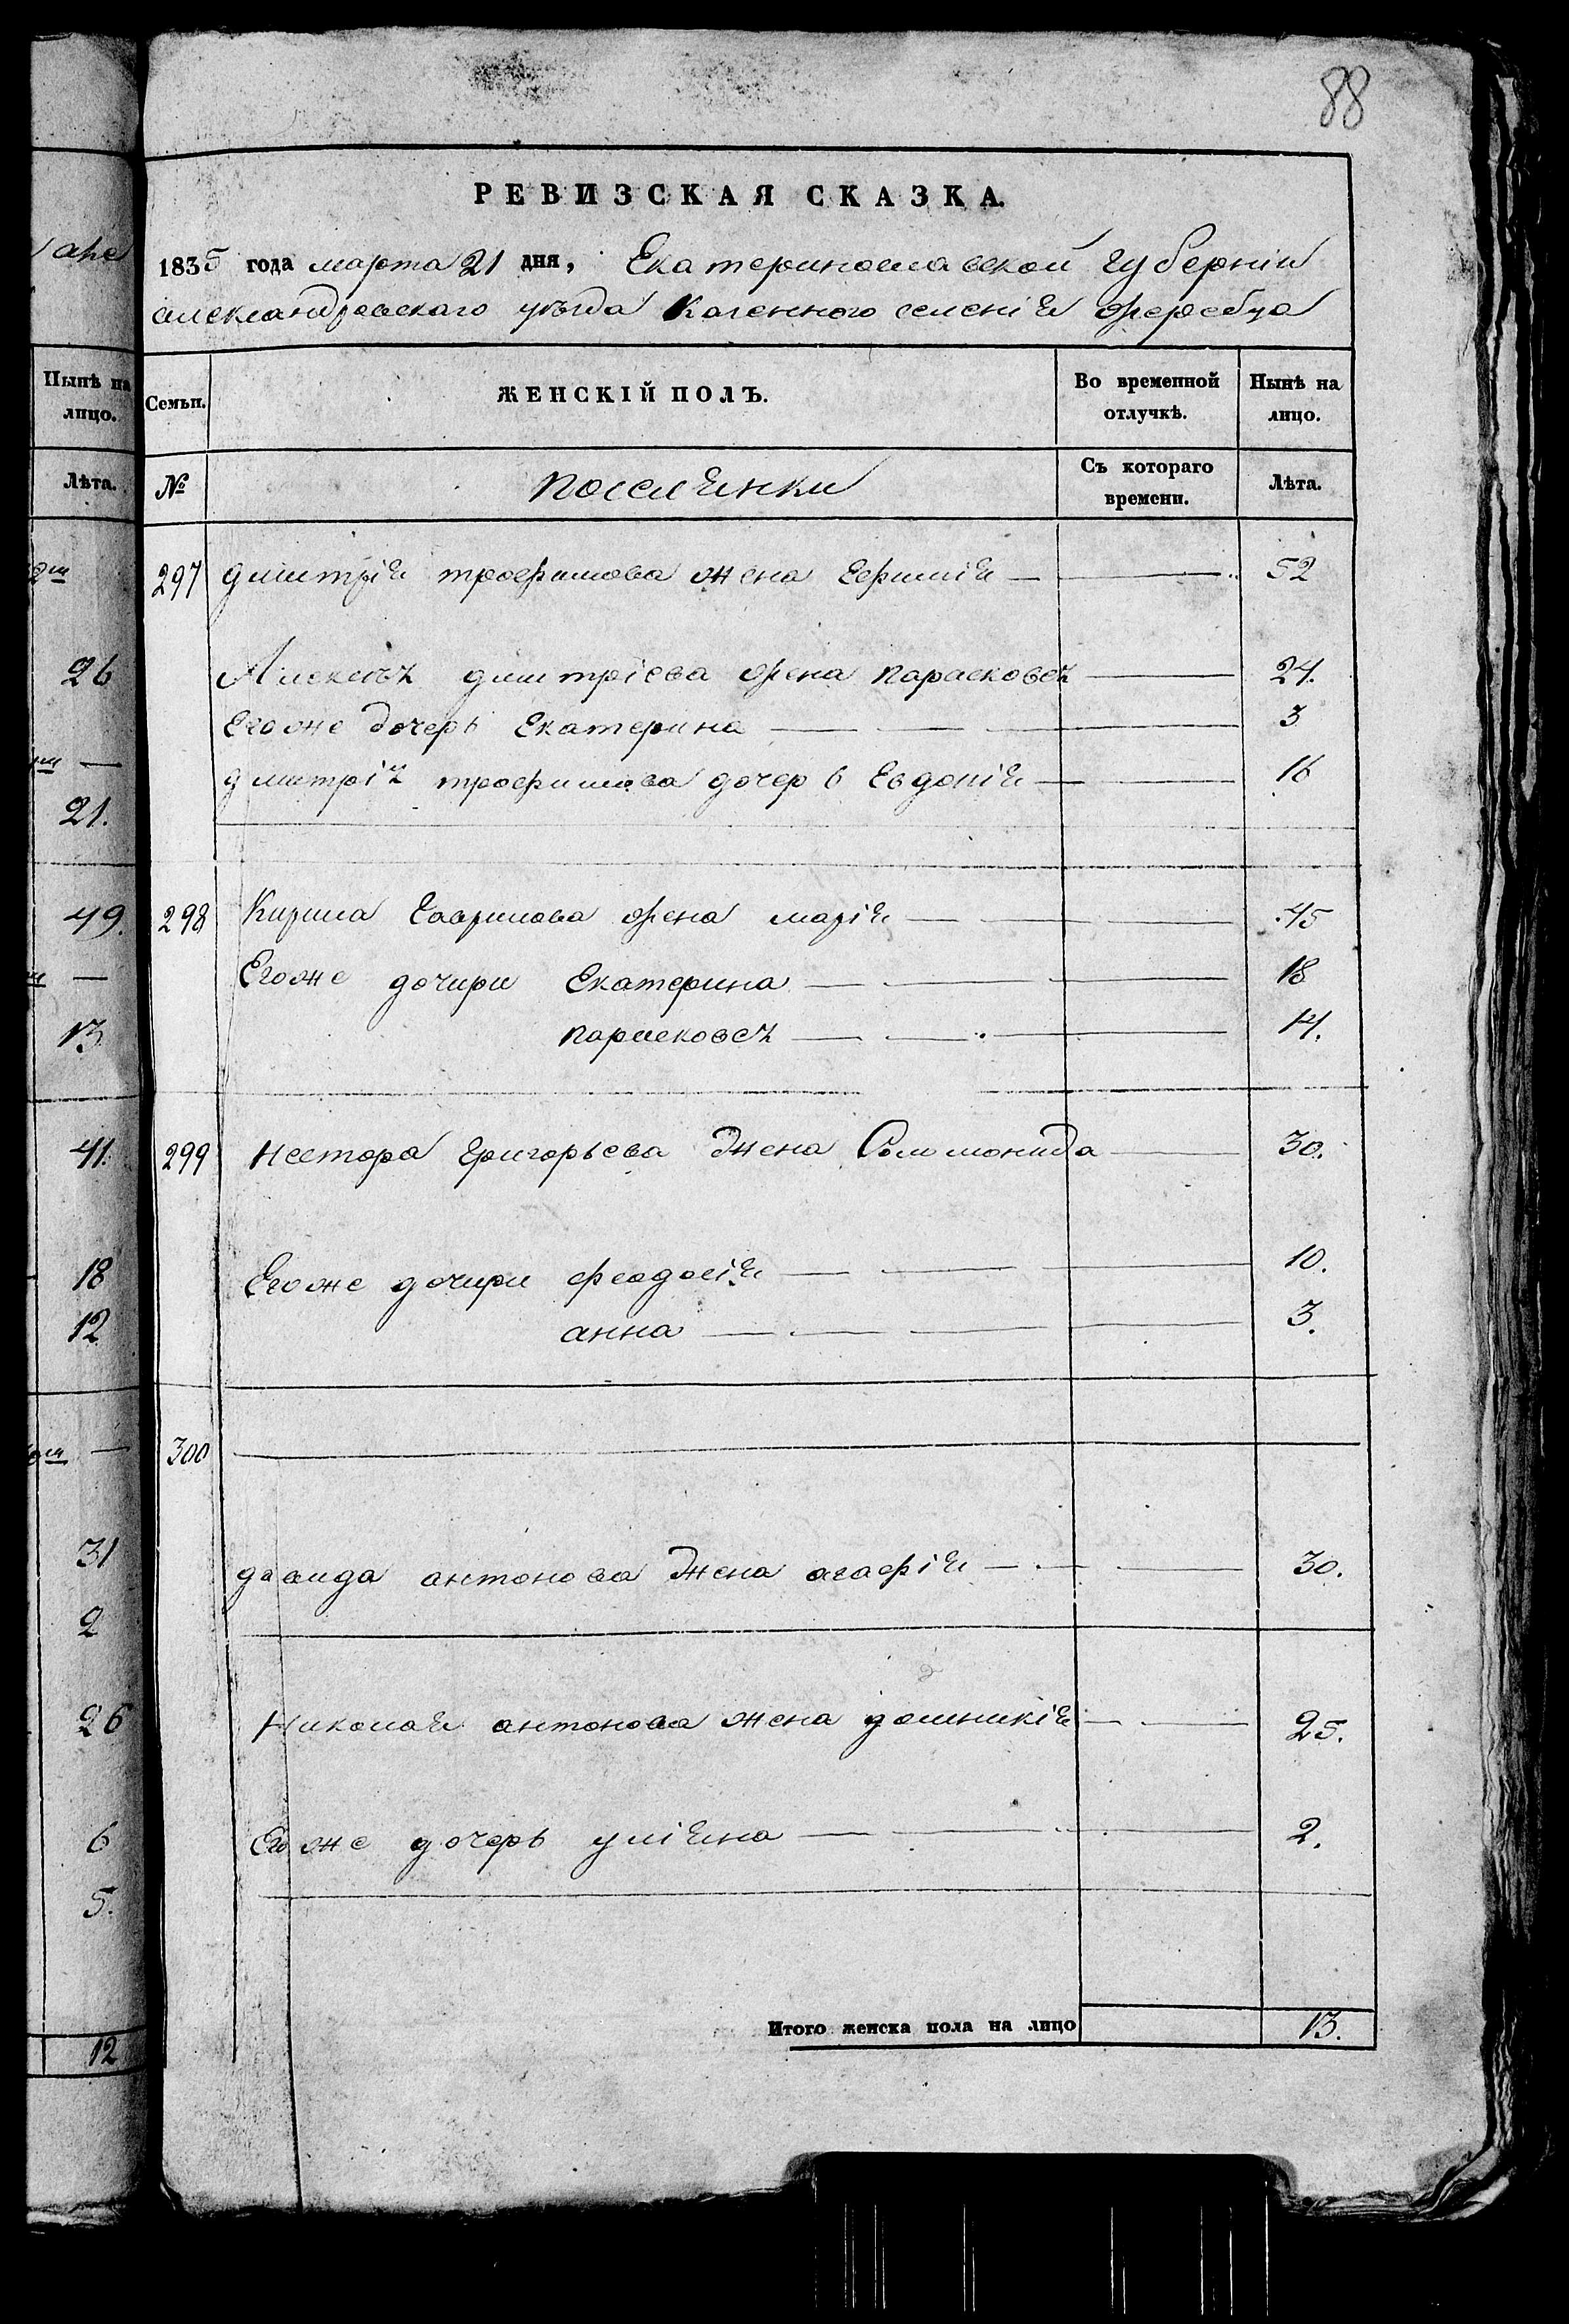 88
РЕВИЗСКАЯ СКАЗКА.
1835 года марта 21 дня, Екатеринославской губерніи
александровскаго уѣзда Казенного селенія жеребца
Семьи.
ЖЕНСКІЙ ПОЛЪ.
Во временной отлучкѣ.
Нынѣ на лицо.
№
поселянки
Съ котораго времени.
Лѣта.
297 дмитрія трофимова жена Ефимія — 52
Алексѣя дмитріева жена парасковея — 24.
Егоже дочерь Екатерина — 3
дмитрія трофимова дочерь Евдокія — 16
298 Кирила Гаврилова жена марія — 45
Егоже дочири Екатерина — 18
парасковея — 14.
299 Нестора Григорьева жена Соломонида — 30.
Егоже дочири феодосія — 10.
анна — 3.
300 —
давида антонова жена агафія — 30.
Николая антонова жена домникія — 25.
Егоже дочерь уліяна — 2.
Итого женска пола на лицо 13.
Нынѣ на
лицо.
Лѣта.
26
21.
49.
13
41.
18
12
31
2
26
6
5.
12